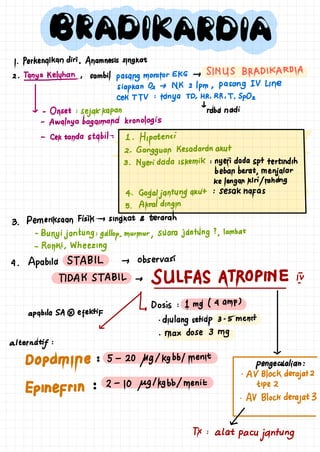 BRADIKARDIA
1. Perkenalkan diri, Anamnesis singkat
2. Tanya Keluhan, sambil pasang monitor EKG → SINUS BRADIKARDIA
siapkan O2 → NK 2 lpm, pasang IV Line
cek TTV : tanya TD, HR, RR, T, SpO2
↓
raba nadi
- Onset : sejak kapan
- Awalnya bagaimana kronologis
- Cek tanda stabil :
1. Hipotensi
2. Gangguan Kesadaran akut
3. Nyeri dada iskemik : nyeri dada spt tertindih
beban berat, menjalar
ke lengan kiri/rahang
4. Gagal jantung akut : sesak napas
5. Akral dingin
3. Pemeriksaan Fisik → singkat & terarah
- Bunyi jantung : gallop, murmur, suara jantung ↑, lambat
- Ronki, Wheezing
4. Apabila STABIL → observasi
TIDAK STABIL → SULFAS ATROPINE IV
Dosis : 1 mg (4 amp)
· diulang setiap 3-5 menit
· max dose 3 mg
apabila SA ⊗ efektif
alternatif :
Dopamine : 5 – 20 µg/kgbb/menit
Epinefrin : 2 – 10 µg/kgbb/menit
Pengecualian :
· AV Block derajat 2
tipe 2
· AV Block derajat 3
Tx : alat pacu jantung